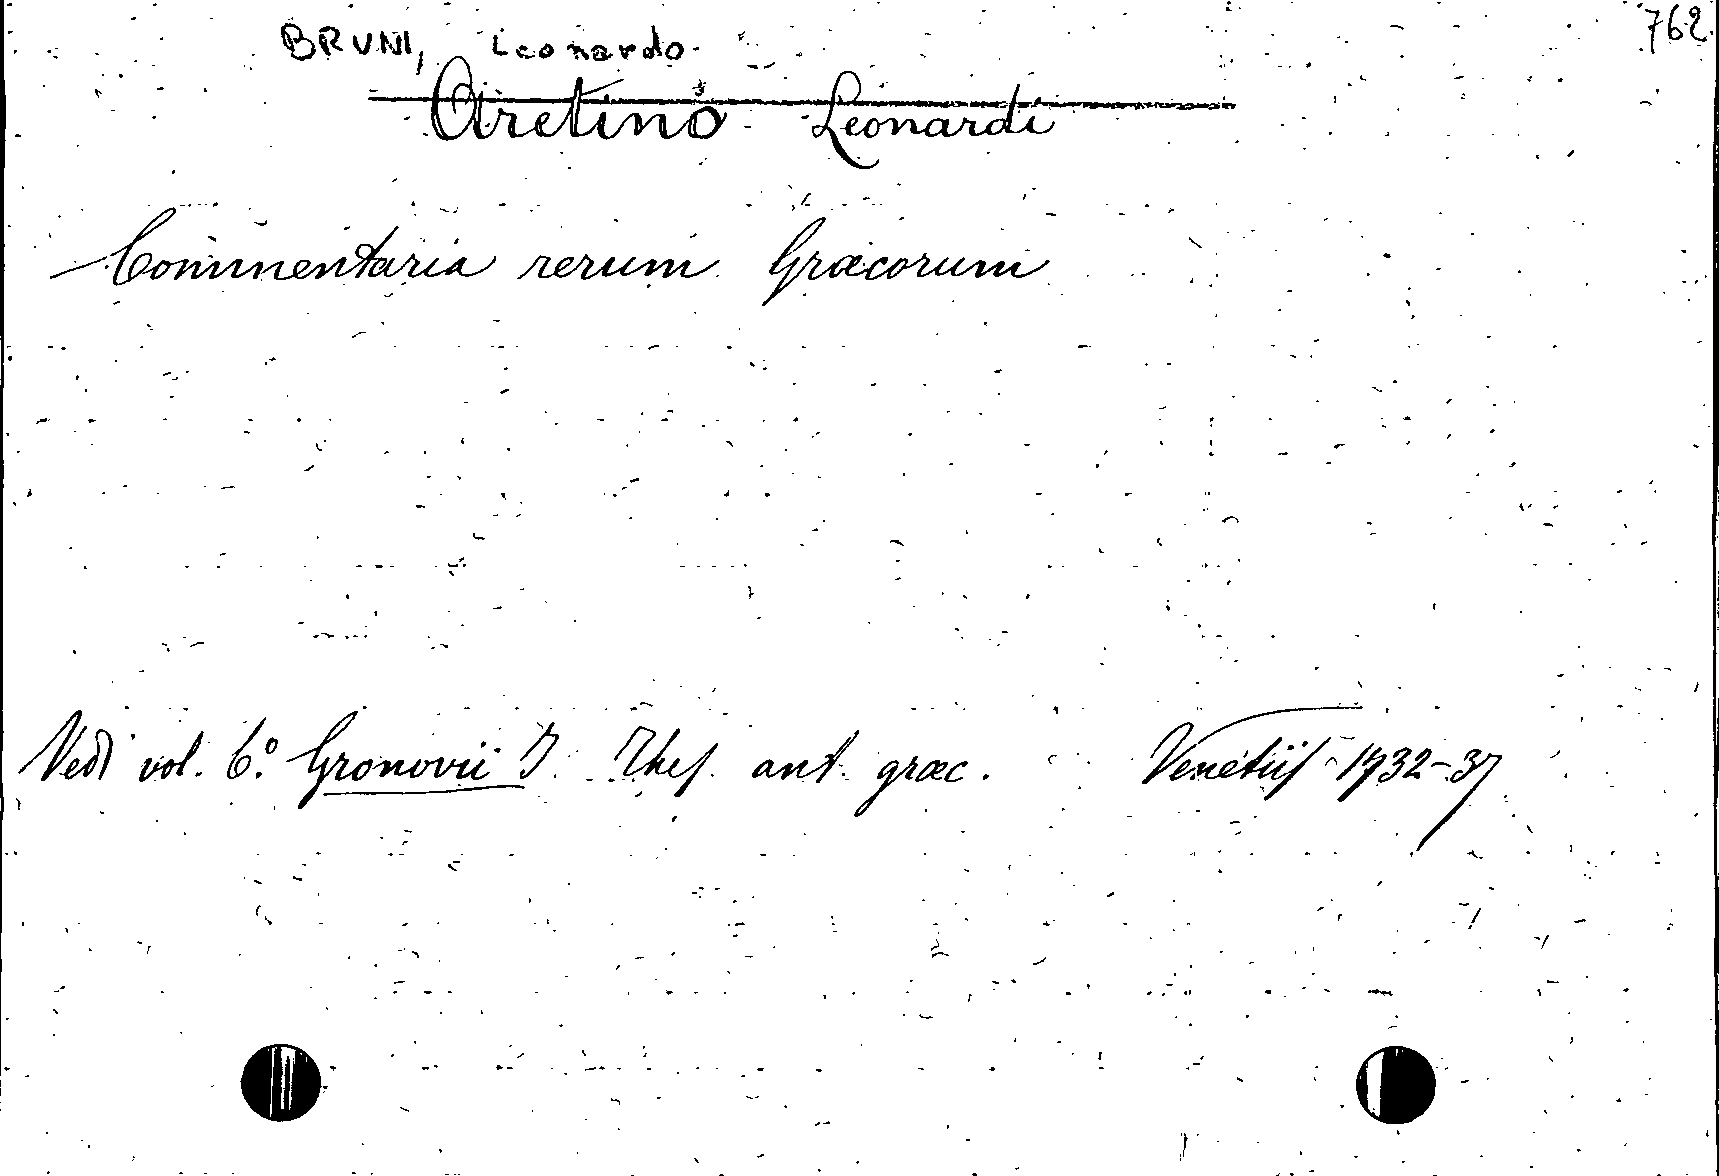 762
BRUNI, Leonardo
Aretino Leonardi
Commentaria rerum Græcorum
Vedi vol. 6.º Gronovii J. Thes. ant. græc. Venetiis 1732-37